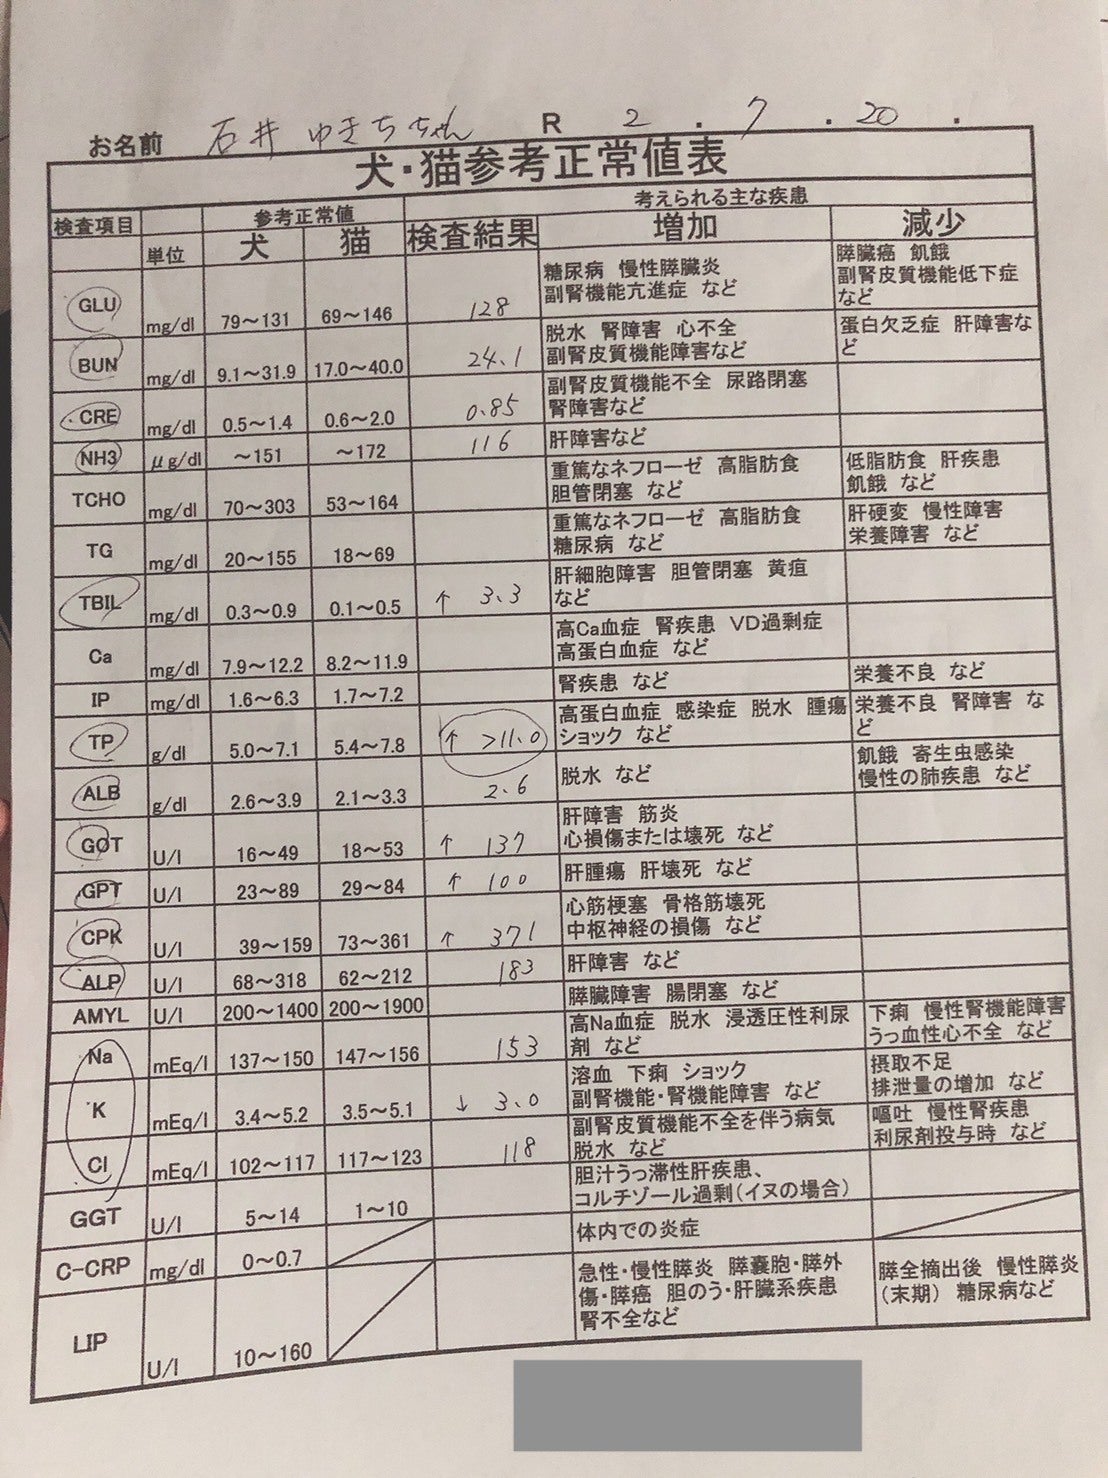 お名前 石井 ゆきちちゃん R 2 . 7 . 20 .
犬・猫参考正常値表
検査項目 参考正常値 考えられる主な疾患
単位 犬 猫 検査結果 増加 減少
GLU mg/dl 79～131 69～146 128 糖尿病 慢性膵臓炎 膵臓癌 飢餓
副腎機能亢進症 など 副腎皮質機能低下症
など
BUN mg/dl 9.1～31.9 17.0～40.0 24.1 脱水 腎障害 心不全 蛋白欠乏症 肝障害な
副腎皮質機能障害など ど
CRE mg/dl 0.5～1.4 0.6～2.0 0.85 副腎皮質機能不全 尿路閉塞
腎障害など
NH3 μg/dl ～151 ～172 116 肝障害など
TCHO mg/dl 70～303 53～164 重篤なネフローゼ 高脂肪食 低脂肪食 肝疾患
胆管閉塞 など 飢餓 など
TG mg/dl 20～155 18～69 重篤なネフローゼ 高脂肪食 肝硬変 慢性障害
糖尿病 など 栄養障害 など
TBIL mg/dl 0.3～0.9 0.1～0.5 ↑ 3.3 肝細胞障害 胆管閉塞 黄疸
など
Ca mg/dl 7.9～12.2 8.2～11.9 高Ca血症 腎疾患 VD過剰症
高蛋白血症 など
IP mg/dl 1.6～6.3 1.7～7.2 腎疾患 など 栄養不良 など
TP g/dl 5.0～7.1 5.4～7.8 ↑ >11.0 高蛋白血症 感染症 脱水 腫瘍 栄養不良 腎障害 な
ショック など ど
ALB g/dl 2.6～3.9 2.1～3.3 2.6 脱水 など 飢餓 寄生虫感染
慢性の肺疾患 など
GOT U/l 16～49 18～53 ↑ 137 肝障害 筋炎
心損傷または壊死 など
GPT U/l 23～89 29～84 ↑ 100 肝腫瘍 肝壊死 など
CPK U/l 39～159 73～361 ↑ 371 心筋梗塞 骨格筋壊死
中枢神経の損傷 など
ALP U/l 68～318 62～212 183 肝障害 など
AMYL U/l 200～1400 200～1900 膵臓障害 腸閉塞 など
Na mEq/l 137～150 147～156 153 高Na血症 脱水 浸透圧性利尿 下痢 慢性腎機能障害
剤 など うっ血性心不全 など
K mEq/l 3.4～5.2 3.5～5.1 ↓ 3.0 溶血 下痢 ショック 摂取不足
副腎機能・腎機能障害 など 排泄量の増加 など
Cl mEq/l 102～117 117～123 118 副腎皮質機能不全を伴う病気 嘔吐 慢性腎疾患
脱水 など 利尿剤投与時 など
GGT U/l 5～14 1～10 胆汁うっ滞性肝疾患、
コルチゾール過剰(イヌの場合)
C-CRP mg/dl 0～0.7 体内での炎症
LIP U/l 10～160 急性・慢性膵炎 膵嚢胞・膵外 膵全摘出後 慢性膵炎
傷・膵癌 胆のう・肝臓系疾患 (末期) 糖尿病など
腎不全など